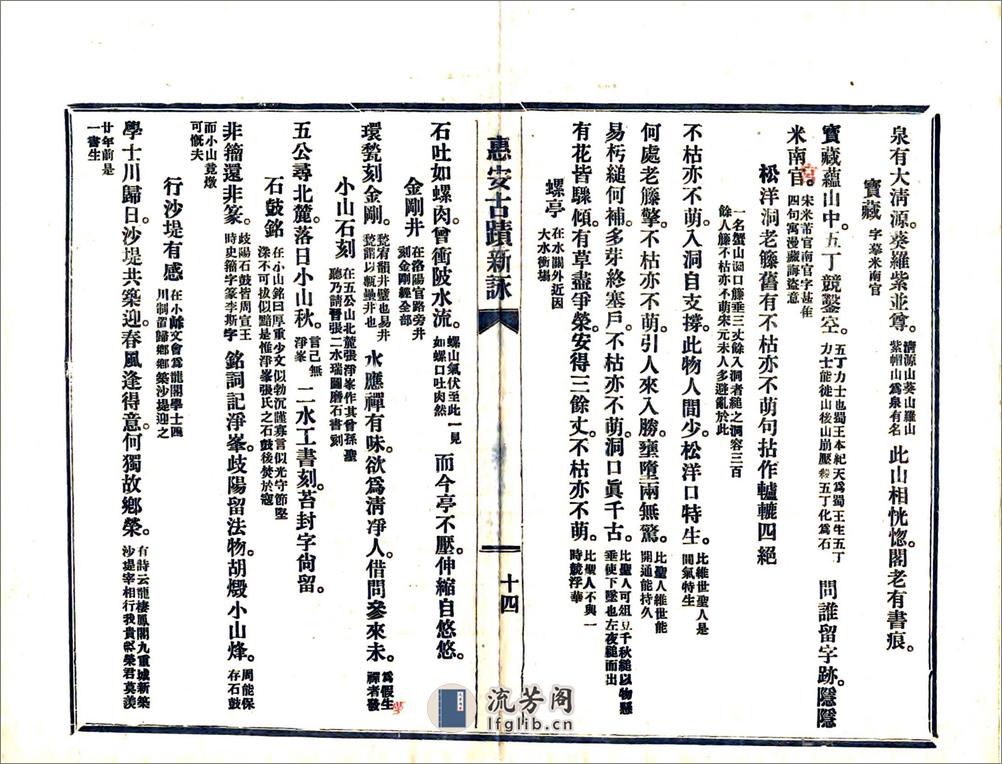 泉有大清源。葵羅紫並尊。清源山葵山羅山紫帽山爲泉有名此山相恍惚。閣老有書痕。
寶藏 字摹米南官
寶藏蘊山中。五丁競鑿空。五丁力士也蜀王本紀天爲蜀王生五丁力士能徙山後山崩壓五丁化爲石問誰留字跡。隱隱
米南官。宋米芾官南官字甚雄四句寓漫藏誨盜意
宮
松洋洞老籐舊有不枯亦不萌句拈作轆轤四絕
一名蟹山洞口籐垂三丈餘入洞者縋之洞容三百餘人籐不枯亦不萌宋元末人多避亂於此
不枯亦不萌。入洞自支撐。此物人間少。松洋口特生。比維世聖人是間氣特生
何處老籐擎。不枯亦不萌。引人來入勝。壅墮兩無驚。比聖人維世能開通能持久
易朽縋何補。多芽終塞戶。不枯亦不萌。洞口眞千古。比聖人可俎豆千秋縋以物懸垂使下墜也左夜縋而出
有花皆驟傾。有草盡爭榮。安得三餘丈。不枯亦不萌。比聖人不與一時競浮華
螺亭 在水關外近因大水衝塲
惠安古蹟新詠
十四
石吐如螺肉。曾衝陂水流。螺山氣伏至此一見如螺口吐肉然而今亭不壓。伸縮自悠悠。
金剛井 在洛陽官路旁井刻金剛經全部
環甃刻金剛。甃宥韻井壁也易井甃謂以甎壘井也水應禪有味。欲爲清凈人。借問參來未。爲假生禪者發
夢
小山石刻 在五公山北麓張淨峯作其曾孫聖聽乃請晉張二水瑞圖磨石書刻
五公尋北麓。落日小山秋。言己無淨峯二水工書刻。苔封字尙留。
石鼓銘 在小山銘曰厚重少文似勃沉謹寡言似光守節堅深不可拔似黯是惟淨峯張氏之石鼓後焚於寇
非籀還非篆。歧陽石鼓皆周宣王時史籀字篆李斯字銘詞記淨峯。歧陽留法物。胡燬小山烽。周能保存石鼓
而小山竟燉可慨夫
行沙堤有感 在小岞文會爲龍閣學士四川制置歸鄉鄉築沙堤迎之
學士川歸日。沙堤共築迎。春風逢得意。何獨故鄕榮。有詩云龍棲鳳閣九重城新築沙堤宰相行我貴榮君莫羡
廿年前是一書生
流芳阁
lfglib.cn